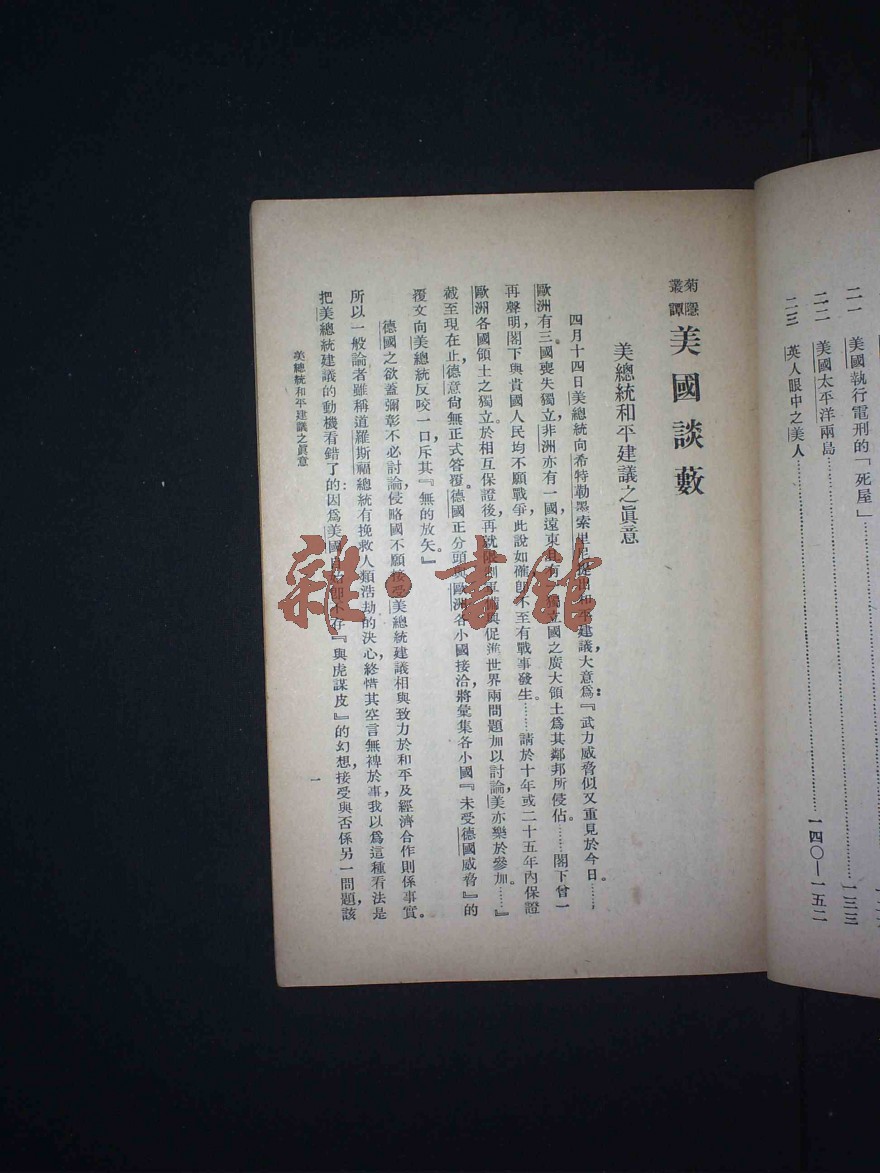 二一 美國執行電刑的「死屋」
一三三
二二 美國太平洋兩島
二三 英人眼中之美人
一四〇—一五二
菊隱叢譚
美國談藪
美總統和平建議之眞意
四月十四日美總統向希特勒墨索里尼提出和平建議，大意爲：『武力威脅似又重見於今日。……
歐洲有三國喪失獨立，非洲亦有一國，遠東且有獨立國之廣大領土爲其鄰邦所侵佔。……閣下曾一
再聲明，閣下與貴國人民均不願戰爭，此說如確卽不至有戰事發生。……請於十年或二十五年內保證
歐洲各國領土之獨立。於相互保證後，再就限制軍備與促進世界兩問題加以討論，美亦樂於參加。……』
截至現在止，德意尙無正式答覆。德國正分頭與歐洲各小國接洽將彙集各小國『未受德國威脅』的
覆文向美總統反咬一口，斥其『無的放矢。』
德國之欲蓋彌彰不必討論，侵略國不願接受美總統建議相與致力於和平及經濟合作則係事實。
所以一般論者雖稱道羅斯福總統有挽救人類浩劫的決心，終惜其空言無裨於事，我以爲這種看法是
把美總統建議的動機看錯了的：因爲美國自始卽不存『與虎謀皮』的幻想，接受與否係另一問題，該
美總統和平建議之眞意
一
雜·書館